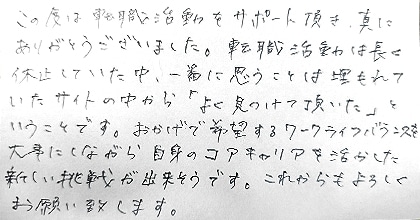 この度は転職活動をサポート頂き、真に
ありがとうございました。転職活動は長く
休止していた中、一番に思うことは埋もれて
いたサイトの中から「よく見つけて頂いた」と
いうことです。おかげで希望するワークライフバランスを
大事にしながら自身のコアキャリアを活かした
新しい挑戦が出来そうです。これからもよろしく
お願い致します。